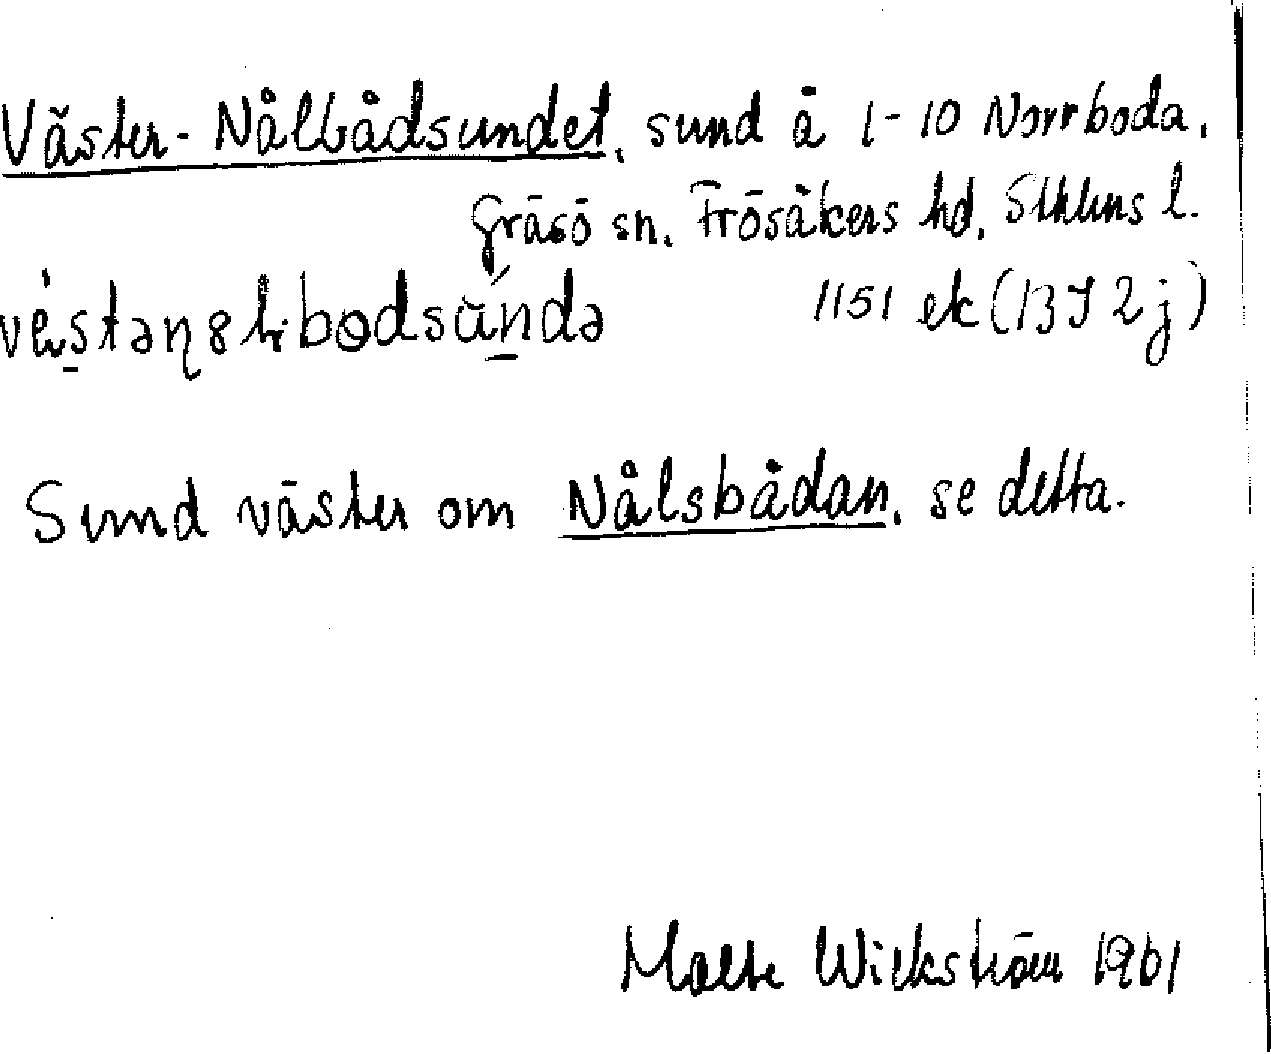 Väster-Nålbådsundet, sund å 1-10 Norrboda,
Gräsö sn, Frösåkers hd, Sthlms l.
1151 ek (13 I 2 j)
Sund väster om Nålsbådan, se detta.
Malte Wickström 1961